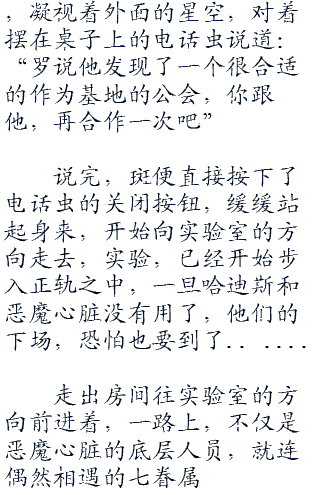 ，凝视着外面的星空，对着
摆在桌子上的电话虫说道：
“罗说他发现了一个很合适
的作为基地的公会，你跟
他，再合作一次吧”
说完，斑便直接按下了
电话虫的关闭按钮，缓缓站
起身来，开始向实验室的方
向走去，实验，已经开始步
入正轨之中，一旦哈迪斯和
恶魔心脏没有用了，他们的
下场，恐怕也要到了．．．．．．
走出房间往实验室的方
向前进着，一路上，不仅是
恶魔心脏的底层人员，就连
偶然相遇的七眷属